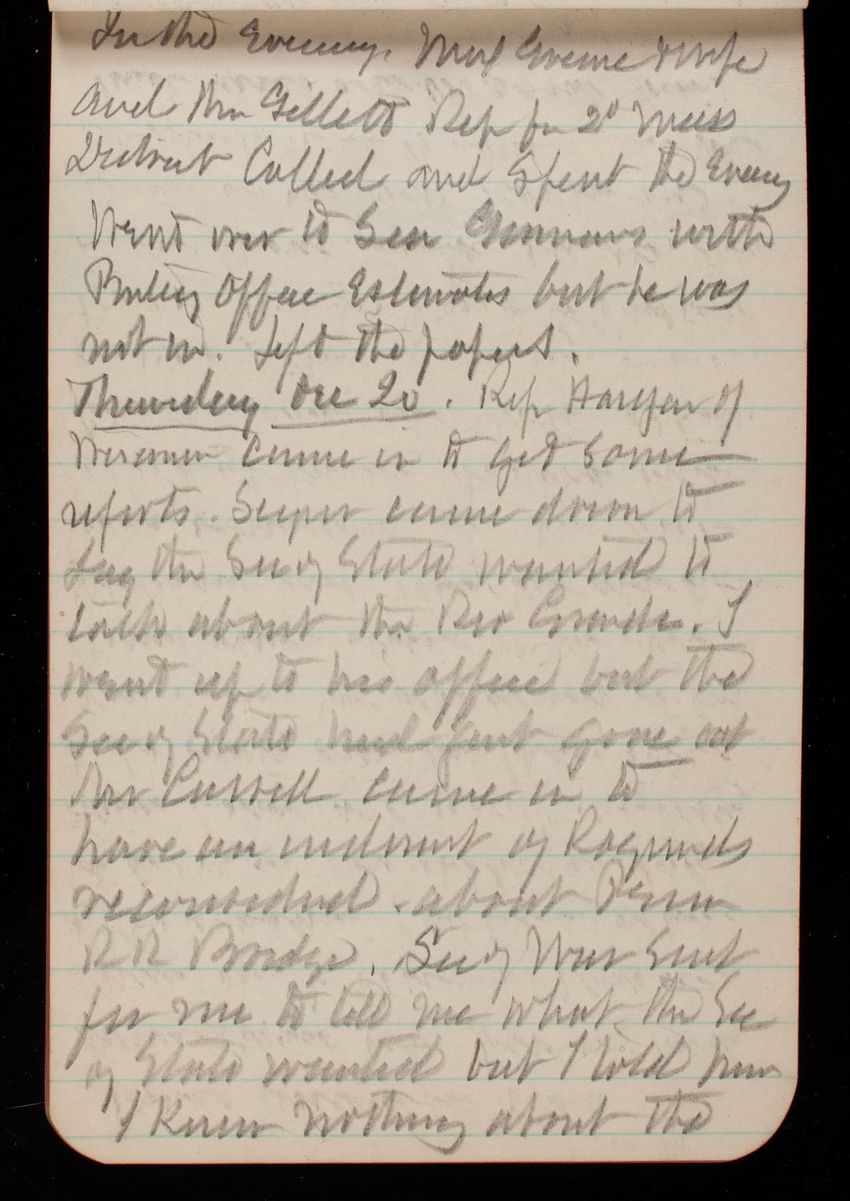 In the Evening. Maj Greene & wife
and Mr Gillett Rep for 2d Mass
District Called and Spent the Evening
Went over to See with
Office Estimates but he was
not in. Left the papers.
Thursday Dec 20. Rep Haugen of
came in to get some
reports. came down to
Say the Sec of State wanted to
talk about the Rio Grande. I
went up to his office but the
Sec of State had just gone out
Mr came in to
have an of
about Penn
RR Bridge. Sec of War Sent
for me to tell me what the Sec
of State wanted but I told him
I Knew nothing about the